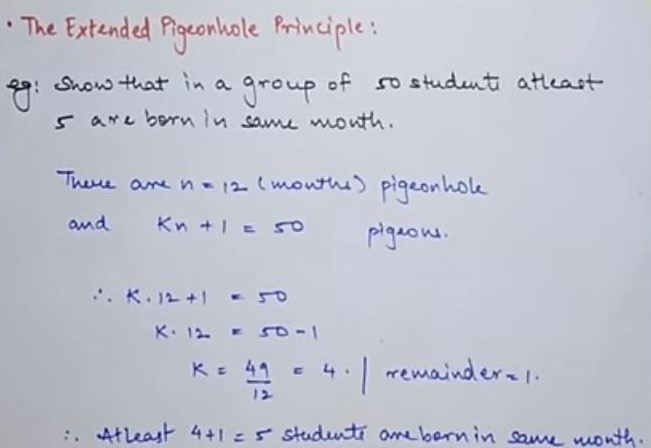 • The Extended Pigeonhole Principle:
eg: Show that in a group of 50 students atleast
5 are born in same month.
There are n = 12 (months) pigeonhole
and Kn + 1 = 50 pigeons.
∴ K. 12 + 1 = 50
K. 12 = 50 - 1
K = 49/12 = 4. | remainder = 1.
∴ Atleast 4+1 = 5 students are born in same month.